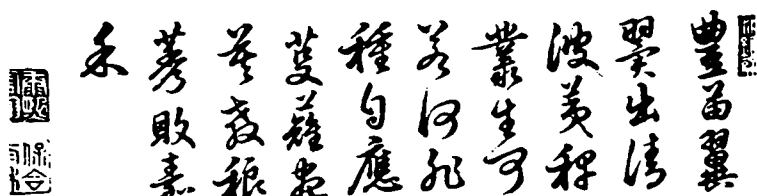 豊苗翼
翼出清
波荑稗
叢生可
若何非
種自應
芟薙盡
莫教稂
莠敗嘉
禾